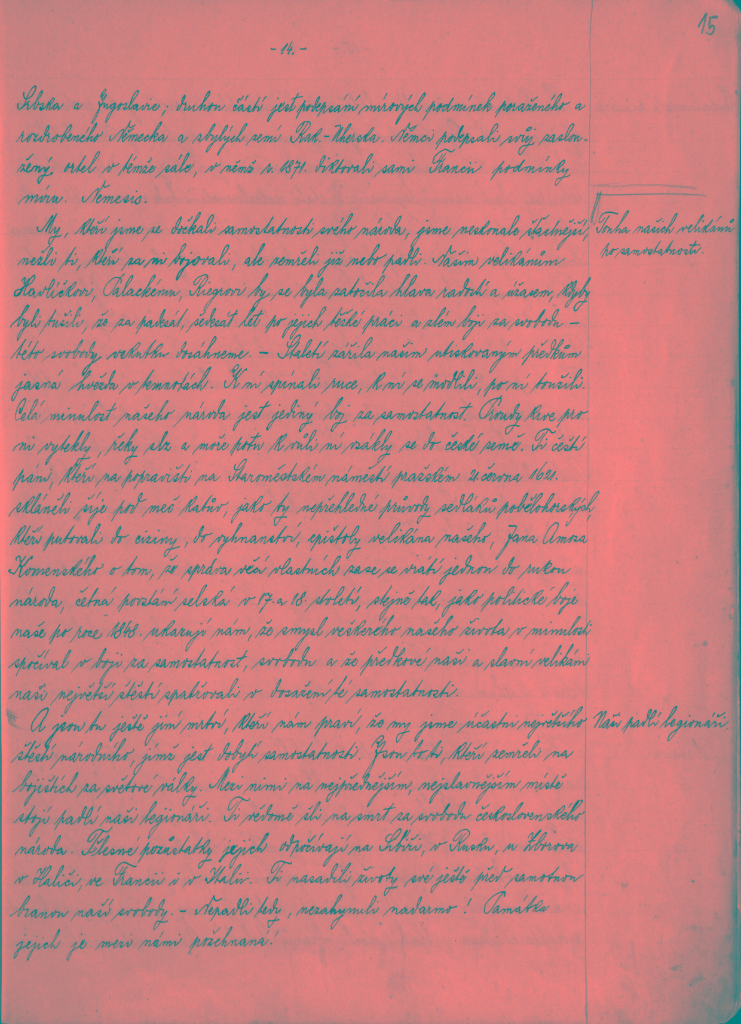 15
- 14. -
Srbska a Jugoslavie; druhou částí jest podepsání mírových podmínek poraženého a
rozdrobeného Německa a zbylých zemí Rak.-Uherska. Němci podepsali svůj zaslou-
žený ortel v témže sále, v němž r. 1871. diktovali sami Francii podmínky
míru. Nemesis.
My, kteří jsme se dočkali samostatnosti svého národa, jsme neskonale šťastnější,
nežli ti, kteří za ni bojovali, ale zemřeli již nebo padli. Našim velikánům
Havlíčkovi, Palackému, Riegrovi by se byla zatočila hlava radostí a úžasem, kdyby
byli tušili, že za padesát, šedesát let po jejich těžké práci a zlém boji za svobodu –
této svobody vskutku dosáhneme. – Staletí zářila našim utiskovaným předkům
jasná hvězda v temnotách. K ní spínali ruce, k ní se modlili, po ní toužili.
Celá minulost našeho národa jest jediný boj za samostatnost. Proudy krve pro
ni vytekly, řeky slz a moře potu k vůli ní vsákly se do české země. Ti čeští
páni, kteří na popravišti na Staroměstském náměstí pražském 21. června 1621.
skláněli šíje pod meč katův, jako by nepřehledné průvody sedláků pobělohorských,
kteří putovali do ciziny, do vyhnanství, epištoly velikána našeho, Jana Amosa
Komenského o tom, že správa věcí vlastních zase se vrátí jednou do rukou
národa, četná povstání selská v 17. a 18. století, stejně tak, jako politické boje
naše po roce 1848. ukazují nám, že smysl veškerého našeho života v minulosti
spočíval v boji za samostatnost, svobodu a že předkové naši a slavní velikáni
naši největší štěstí spatřovali v dosažení té samostatnosti.
A jsou tu ještě jiní mrtví, kteří nám praví, že my jsme účastni největšího
štěstí národního, jímž jest dobytí samostatnosti. Jsou to ti, kteří zemřeli na
bojištích za světové války. Mezi nimi na nejpřednějším, nejslavnějším místě
stojí padlí naši legionáři. Ti vědomě šli na smrt za svobodu československého
národa. Tělesné pozůstatky jejich odpočívají na Sibiři, v Rusku, u Zborova
v Haliči, ve Francii i v Itálii. Ti nasadili životy své ještě před samotnou
branou naší svobody. – Nepadli tedy, nezahynuli nadarmo! Památka
jejich je mezi námi požehnaná!
Touha našich velikánů
po samostatnosti.
Naši padlí legionáři.